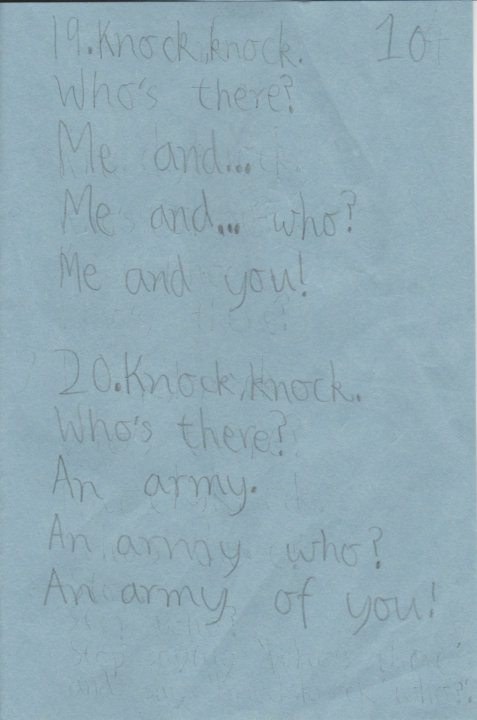 19. Knock, knock. 10
Who's there?
Me and...
Me and... who?
Me and you!
20. Knock, knock.
Who's there?
An army.
An army who?
An army of you!